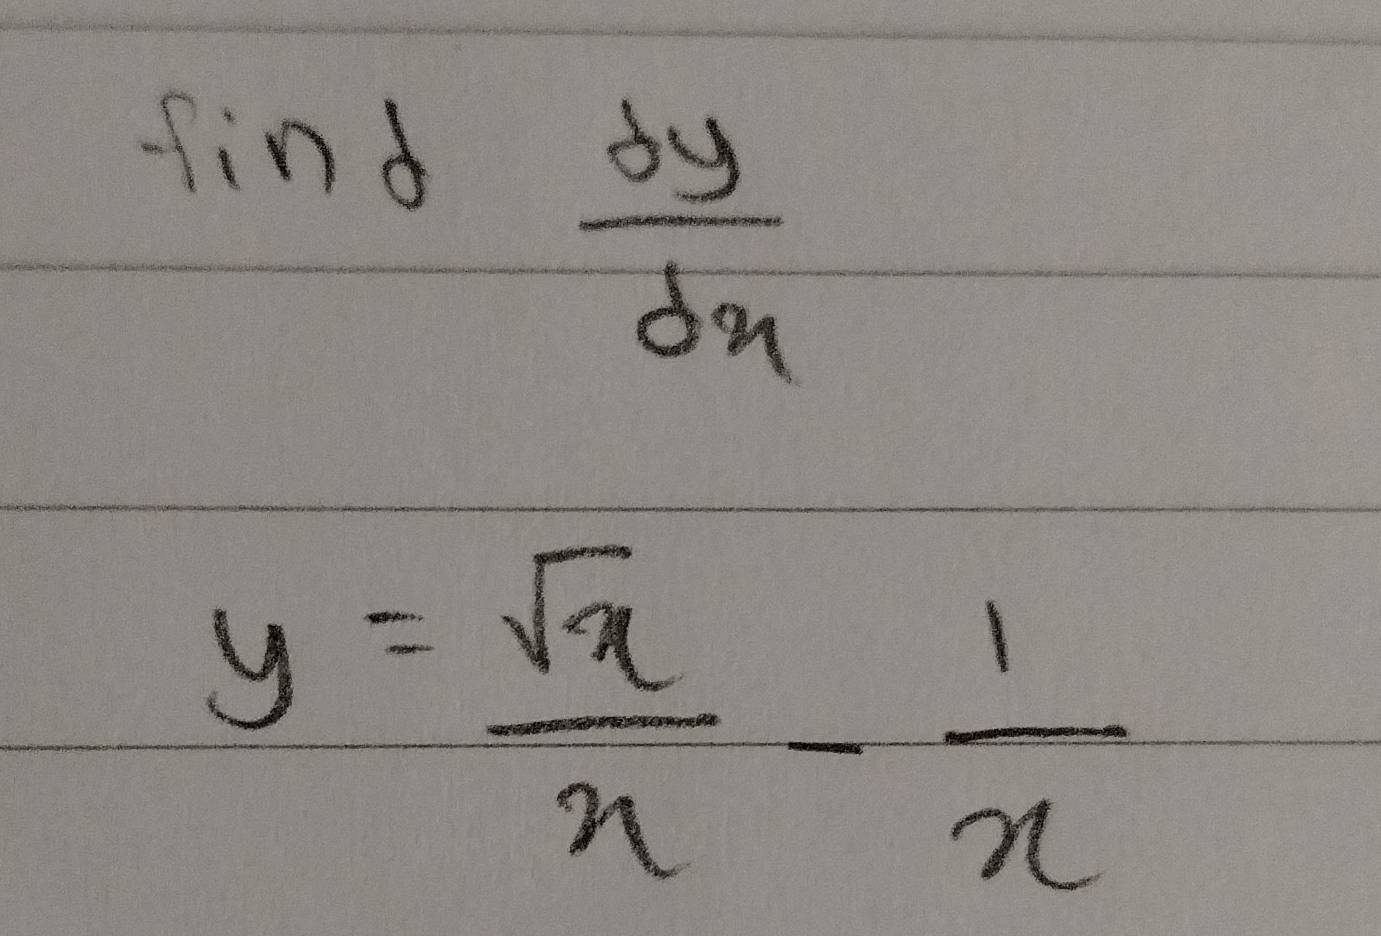 find dy/dx
y = √x/x - 1/x